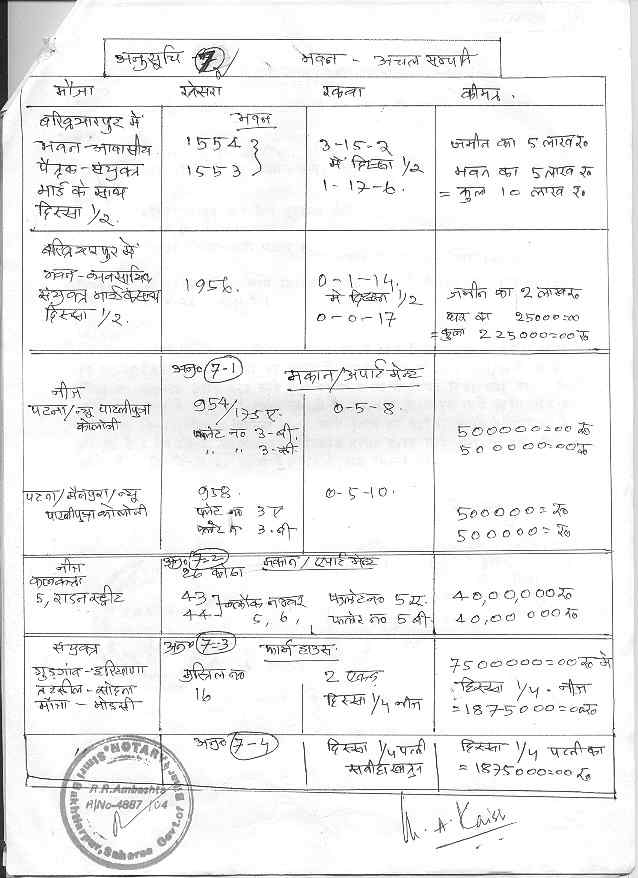 अनुसूचि - 7 भवन - अचल सम्पति
मौजा खेसरा रकवा कीमत
बख्तियारपुर में भवन
भवन-आवासीय 1554 3-15-2 जमीन का 5 लाख रु
पैतृक-संयुक्त 1553 में हिस्सा 1/2 भवन का 5 लाख रु
भाई के साथ 1-17-6. = कुल 10 लाख रु
हिस्सा 1/2.
बख्तियारपुर में
भवन-व्यवसायिक 1956. 0-1-14.
संयुक्त भाई के साथ में हिस्सा 1/2 जमीन का 2 लाख रु
हिस्सा 1/2. 0-0-17 का 25000=00
= कुल 225000=00 रु
अनु० 7-1 मकान/अपार्टमेन्ट
नीज 954/175 ए. 0-5-8.
पटना/न्यू पाटलीपुत्रा फ्लेट न० 3-बी. 500000=00 रु
कोलोनी " " 3-सी 500000=00 रु
पटना/मैनपुरा/न्यू 958. 0-5-10.
पाटलीपुत्रा कोलोनी फ्लेट न० 3 ए 500000=00 रु
फ्लेट न० 3-बी 500000=00 रु
अनु० 7-2 मकान/एपार्टमेन्ट
नीज 26 कोठा
कलकत्ता 43 ब्लौक नम्बर फ्लेट न० 5 ए. 40,00,000 रु
5, राडन स्ट्रीट 44 5, 6, फ्लेट न० 5 बी. 40,00 000 रु
संयुक्त अनु० 7-3 फार्म हाउस
गुड़गांव-हरियाणा मुस्तिल न० 2 एकड़ 7500000=00 रु में
तहसील-सोहना 16 हिस्सा 1/4 नीज हिस्सा 1/4 नीज
मौजा - भोडसी = 1875000=00 रु
" अनु० 7-4 हिस्सा 1/4 पत्नी हिस्सा 1/4 पत्नी का
= 1875000=00 रु
NOTARY
R.R. Ambashta
R/No-4887/04
Bakhtiarpur, Saharsa Govt. of